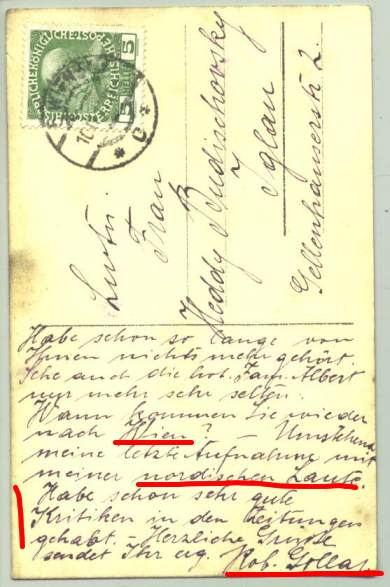 5
5
Frau
Heddy Rudischovsky
Iglau
Gellenhauserstr. 2.
Habe schon so lange von
Ihnen nichts mehr gehört.
Sehe auch die hob. Fam. Albert
nur mehr sehr selten.
Wann kommen Sie wieder
nach Wien? – Umstehend
meine letzte Aufnahme mit
meiner nordischen Laute.
Habe schon sehr gute
Kritiken in den Zeitungen
gehabt. – Herzliche Grüsse
sendet Ihr erg. Rob. Kollar